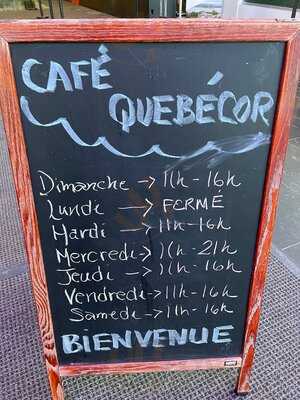 CAFÉ
QUEBÉCOR
Dimanche -> 11h - 16h
Lundi -> FERMÉ
Mardi -> 11h - 16h
Mercredi -> 11h - 21h
Jeudi -> 11h - 16h
Vendredi -> 11h - 16h
Samedi -> 11h - 16h
BIENVENUE